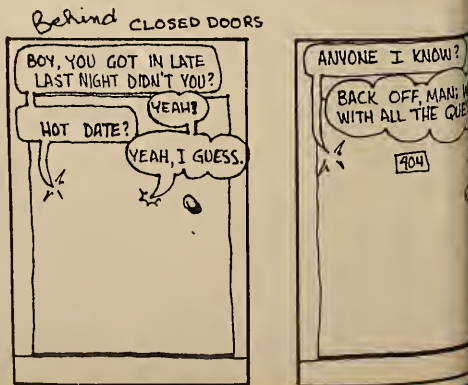 Behind CLOSED DOORS
BOY, YOU GOT IN LATE
LAST NIGHT DIDN'T YOU?
YEAH?
HOT DATE?
YEAH, I GUESS.
ANYONE I KNOW?
BACK OFF, MAN;
WITH ALL THE
404